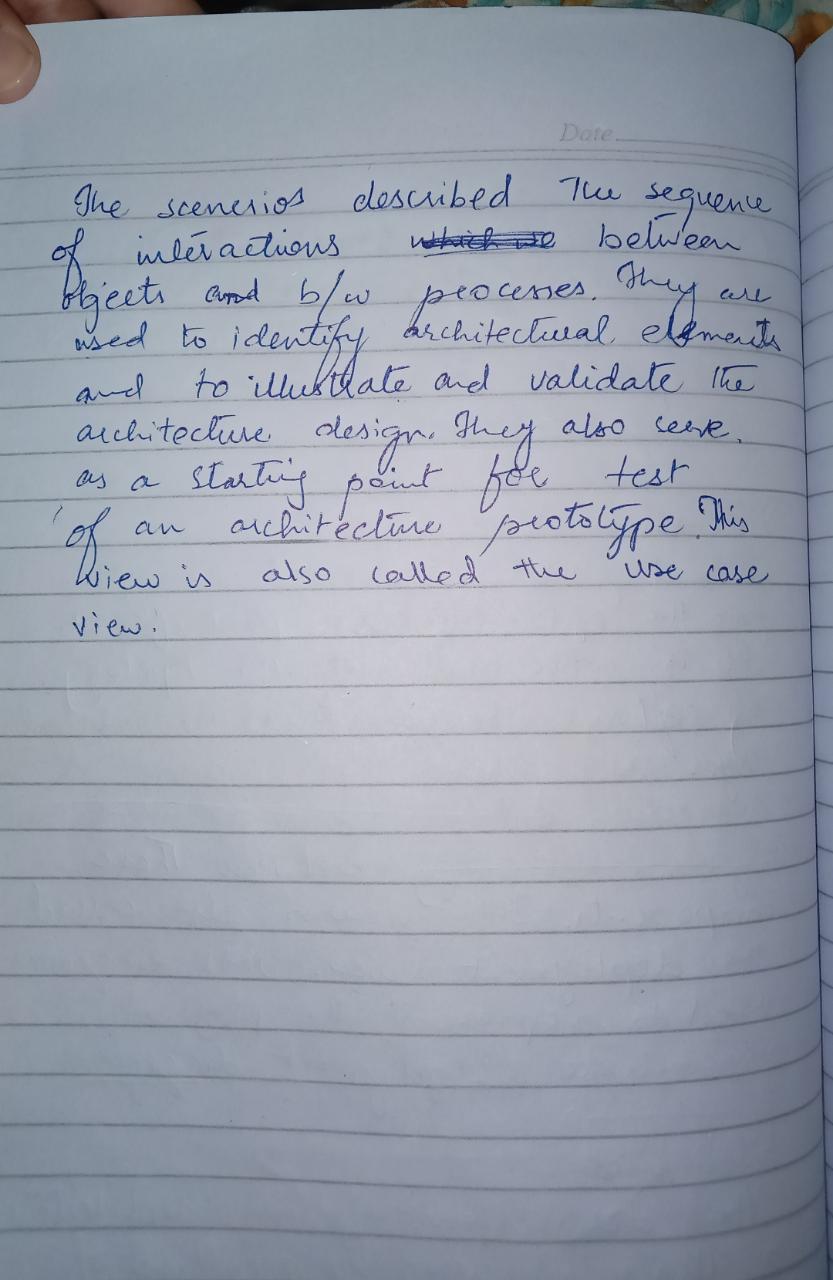 Date
The scenerios described The sequence
of interactions between
objects and b/w processes. They are
used to identify architectural elements
and to illustrate and validate the
architecture design. They also serve.
as a starting point for test
of an architecture prototype. This
view is also called the use case
view.